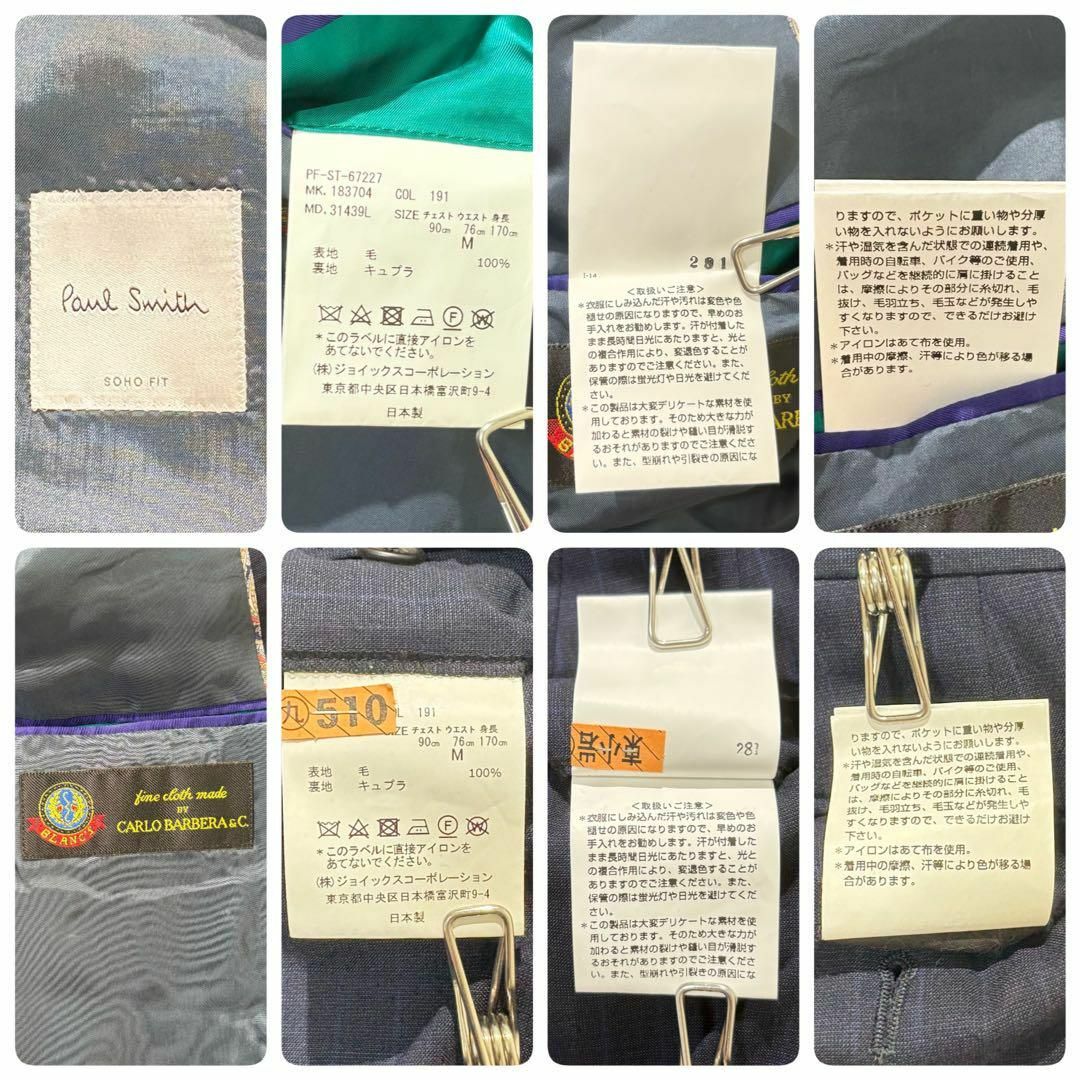 Paul Smith
SOHO FIT
PF-ST-67227
MK. 183704 COL 191
MD. 31439L SIZE チェスト ウエスト 身長
90㎝ 76㎝ 170㎝
M
表地 毛 100%
裏地 キュプラ
*このラベルに直接アイロンを
あてないでください。
(株)ジョイックスコーポレーション
東京都中央区日本橋富沢町9-4
日本製
281
I-14
<取扱いご注意>
*衣服にしみ込んだ汗や汚れは変色や色
褪せの原因になりますので、早めのお
手入れをお勧めします。汗が付着した
まま長時間日光にあたりますと、光と
の複合作用により、変退色することが
ありますのでご注意ください。また、
保管の際は蛍光灯や日光を避けてくだ
さい。
*この製品は大変デリケートな素材を使
用しております。そのため大きな力が
加わると素材の裂けや縫い目が滑脱す
るおそれがありますのでご注意くださ
い。また、型崩れや引裂きの原因にな
cloth
BY
りますので、ポケットに重い物や分厚
い物を入れないようにお願いします。
*汗や湿気を含んだ状態での連続着用や、
着用時の自転車、バイク等のご使用、
バッグなどを継続的に肩に掛けること
は、摩擦によりその部分に糸切れ、毛
抜け、毛羽立ち、毛玉などが発生しや
すくなりますので、できるだけお避け
下さい。
*アイロンはあて布を使用。
*着用中の摩擦、汗等により色が移る場
合があります。
fine cloth made
BY
CARLO BARBERA & C.
BLANCS
丸 510
L 191
ZE チェスト ウエスト 身長
90㎝ 76㎝ 170㎝
M
表地 毛 100%
裏地 キュプラ
*このラベルに直接アイロンを
あてないでください。
(株)ジョイックスコーポレーション
東京都中央区日本橋富沢町9-4
日本製
281
<取扱いご注意>
*衣服にしみ込んだ汗や汚れは変色や色
褪せの原因になりますので、早めのお
手入れをお勧めします。汗が付着した
まま長時間日光にあたりますと、光と
の複合作用により、変退色することが
ありますのでご注意ください。また、
保管の際は蛍光灯や日光を避けてくだ
さい。
*この製品は大変デリケートな素材を使
用しております。そのため大きな力が
加わると素材の裂けや縫い目が滑脱す
るおそれがありますのでご注意くださ
い。また、型崩れや引裂きの原因にな
りますので、ポケットに重い物や分厚
い物を入れないようにお願いします。
*汗や湿気を含んだ状態での連続着用や、
着用時の自転車、バイク等のご使用、
バッグなどを継続的に肩に掛けること
は、摩擦によりその部分に糸切れ、毛
抜け、毛羽立ち、毛玉などが発生しや
すくなりますので、できるだけお避け
下さい。
*アイロンはあて布を使用。
*着用中の摩擦、汗等により色が移る場
合があります。